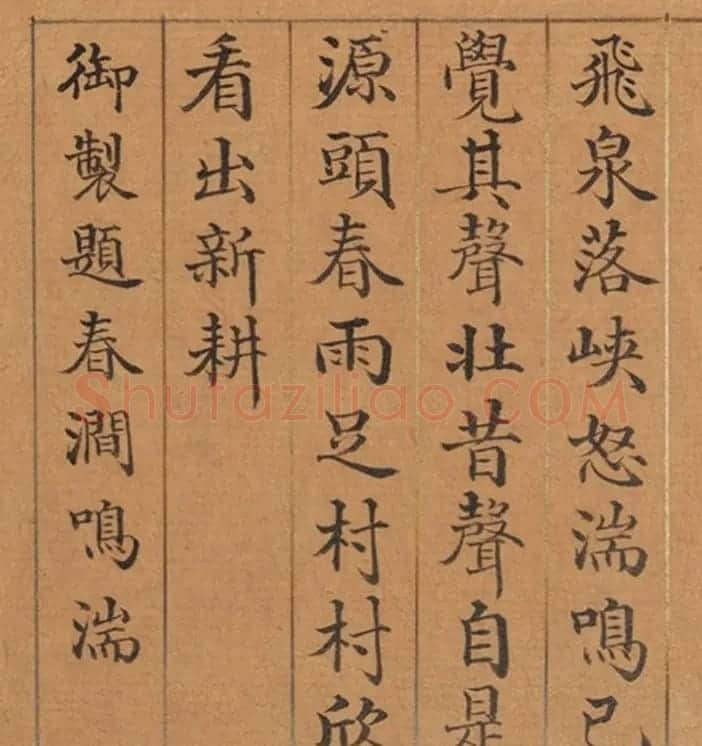 飛泉落峽怒湍鳴已
覺其聲壯昔聲自是
源頭春雨足村村欣
看出新耕
御製題春澗鳴湍
Shufaziliao.COM